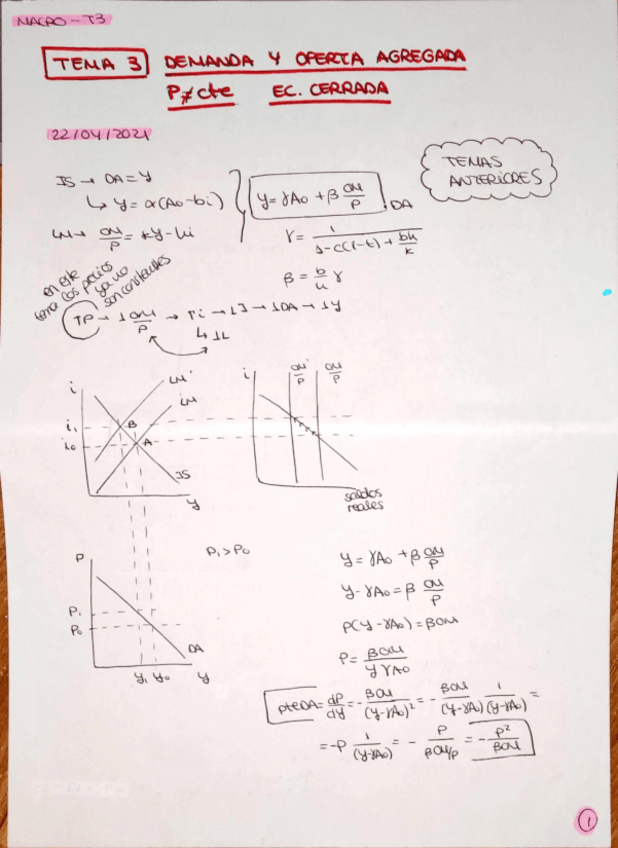 MACRO - T3
TEMA 3 DEMANDA Y OFERTA AGREGADA
P≠cte EC. CERRADA
22/04/2021
TEMAS
ANTERIORES
IS → DA = Y
↳ Y = α(A₀ - bi)
LM → OM/P = kY - hi
Y = γA₀ + β OM/P
DA
γ = 1/(1-c(1-t) + bh/k)
β = b/h γ
en este
tema los precios
ya no
son constantes
↑P → ↓OM/P → ↑i → ↓I → ↓DA → ↓Y
↳ ↓L
i
LM'
LM
i₁
B
i₀
A
IS
Y
i
OM'/P
OM/P
saldos
reales
P₁ > P₀
P
P₁
P₀
DA
Y₁ Y₀ Y
Y = γA₀ + β OM/P
Y - γA₀ = β OM/P
P(Y - γA₀) = βOM
P = βOM/Y γA₀
pteDA = dP/dY = - βOM/(Y-γA₀)² = - βOM/(Y-γA₀) 1/(Y-γA₀) =
= -P 1/(Y-γA₀) = - P/(βOM/P) = - P²/βOM
1